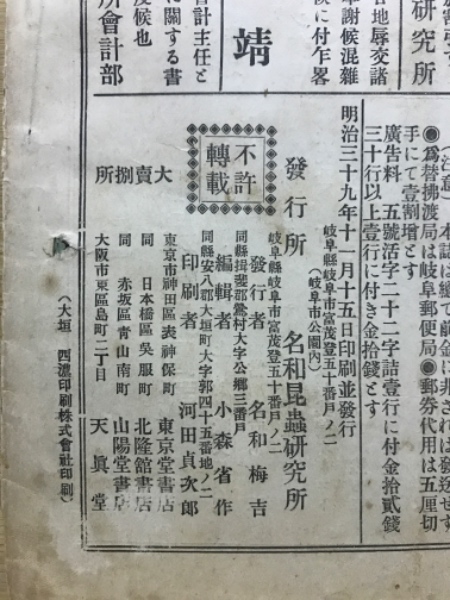 研究所
靖
計主任と
に關する書
度候也
所會計部
●爲替拂渡局は岐阜郵便局●郵券代用は五厘切
手にて壹割增とす
廣告料 五號活字二十二字詰壹行に付金拾貳錢
三十行以上壹行に付き金拾錢とす
明治三十九年十一月十五日印刷並發行
岐阜縣岐阜市富茂登五十番戶ノ二
(岐阜市公園內)
發行所 名和昆蟲研究所
岐阜縣岐阜市富茂登五十番戶ノ二
發行者 名和梅吉
同縣揖斐郡鶯村大字公鄕三番戶
編輯者 小森省作
同縣安八郡大垣町大字郭四十五番地ノ二
印刷者 河田貞次郎
不許
轉載
大賣捌所
東京市神田區表神保町 東京堂書店
同 日本橋區吳服町 北隆館書店
同 赤坂區靑山南町 山陽堂書店
大阪市東區島町二丁目 天眞堂
(大垣 西濃印刷株式會社印刷)